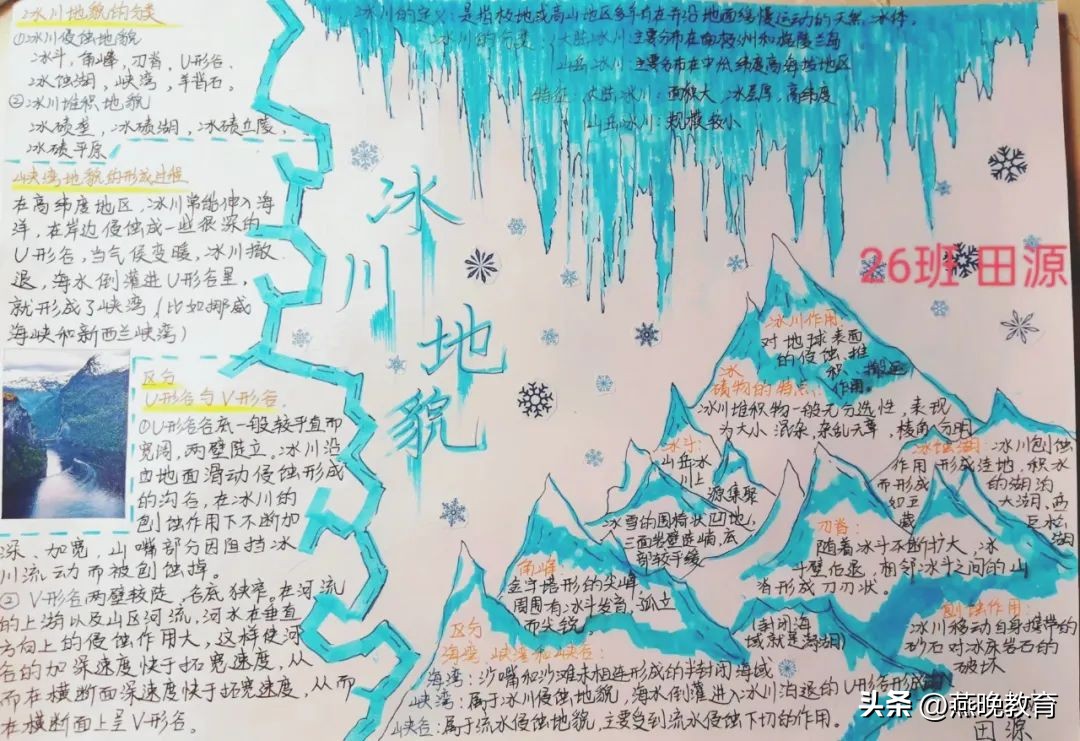 冰川地貌的分类
①冰川侵蚀地貌
冰斗，角峰，刃脊，U形谷，
冰蚀湖，峡湾，羊背石。
②冰川堆积地貌
冰碛垄，冰碛湖，冰碛丘陵，
冰碛平原
峡湾地貌的形成过程
在高纬度地区，冰川常能伸入海
洋，在岸边侵蚀成一些很深的
U形谷，当气候变暖，冰川撤
退，海水倒灌进U形谷里，
就形成了峡湾（比如挪威
海峡和新西兰峡湾）
区分
U形谷与V形谷．
①U形谷谷底一般较平直而
宽阔，两壁陡立。冰川沿
凹地面滑动侵蚀形成
的沟谷，在冰川的
刨蚀作用下不断加
深、加宽，山嘴部分因阻挡冰
川流动而被刨蚀掉。
②V形谷两壁较陡，谷底狭窄。在河流
的上游以及山区河流，河水在垂直
方向上的侵蚀作用大，这样使河
谷的加深速度快于拓宽速度，从
而在横断面深速度快于拓宽速度，从而
在横断面上呈V形谷。
冰川的定义：是指极地或高山地区多年存在并沿地面缓慢运动的天然冰体。
冰川的分类：大陆冰川：主要分布在南极洲和格陵兰岛
山岳冰川：主要分布在中低纬度高海拔地区
特征：大陆冰川：面积大，冰层厚，高纬度
山岳冰川：规模较小
冰川地貌
26班 田源
冰川作用：
对地球表面
的侵蚀、推
积、搬运
作用。
冰碛物的特点：
冰川堆积物一般无分选性，表现
为大小混杂，杂乱无章，棱角分明
冰斗：
山岳冰
川上
源集聚
冰雪的围椅状凹地，
三面岩壁陡峭，底
部较平缓
冰蚀湖：冰川刨蚀
作用形成洼地，积水
而形成的湖泊
刃脊：
随着冰斗不断扩大，冰
斗壁后退，相邻冰斗之间的山
脊形成刀刃状。
角峰：
金字塔形的尖峰，
周围有冰斗发育，孤立
而尖锐，
刨蚀作用：
冰川移动自身携带的
砂石对冰床岩石的
破坏
区分
海湾，峡湾和峡谷：
(封闭海
域就是潟湖)
海湾：沙嘴和沙滩未相连形成的半封闭海域
峡湾：属于冰川侵蚀地貌，海水倒灌进入冰川消退的U形谷形成
峡谷：属于流水侵蚀地貌，主要受到流水侵蚀下切的作用。
田源
头条 @燕晚教育